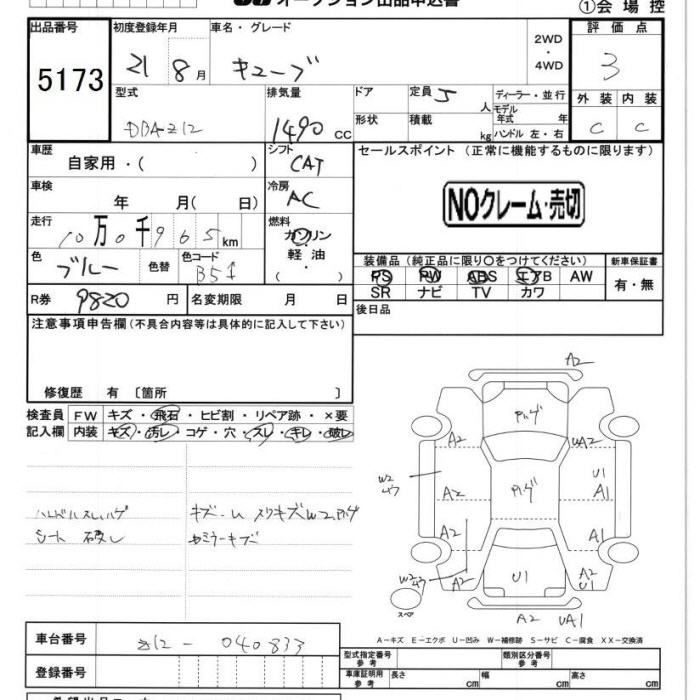 オークション出品申込書
①会場控
出品番号 初度登録年月 車名・グレード 評価点
5173 21 8月 キューブ 2WD・4WD 3
型式 排気量 ドア 定員 5人 ディーラー・並行 外装 内装
DBA-Z12 1490cc モデル年式 年 C C
形状 積載 kg ハンドル 左・右
車歴 シフト セールスポイント (正常に機能するものに限ります)
自家用・( ) CAT
車検 年 月( 日) 冷房 AC NOクレーム・売切
走行 燃料
10万0千965km ガソリン・軽油・( )
色 ブルー 色替 色コード B51 装備品(純正品に限り○をつけてください) 新車保証書
PS PW ABS エアB AW 有・無
SR ナビ TV カワ
R券 9820円 名変期限 月 日 後日品
注意事項申告欄(不具合内容等は具体的に記入して下さい)
修復歴 有 〔箇所 〕
検査員 FW キズ・飛石・ヒビ割・リペア跡・×要
記入欄 内装 キズ・汚レ・コゲ・穴・スレ・キレ・破レ
ハンドルスレ、ハゲ
シート 破レ
A2
A2 UA2
W2 A2 U1
A1
A2 A1
W2 A2 U1 A2
U1
スペア A2 UA1
A－キズ E－エクボ U－凹み W－補修跡 S－サビ C－腐食 XX－交換済
車台番号 Z12-040833
型式指定番号 参考 類別区分番号 参考
登録番号 車庫証明用 参考 長さ cm 幅 cm 高さ cm